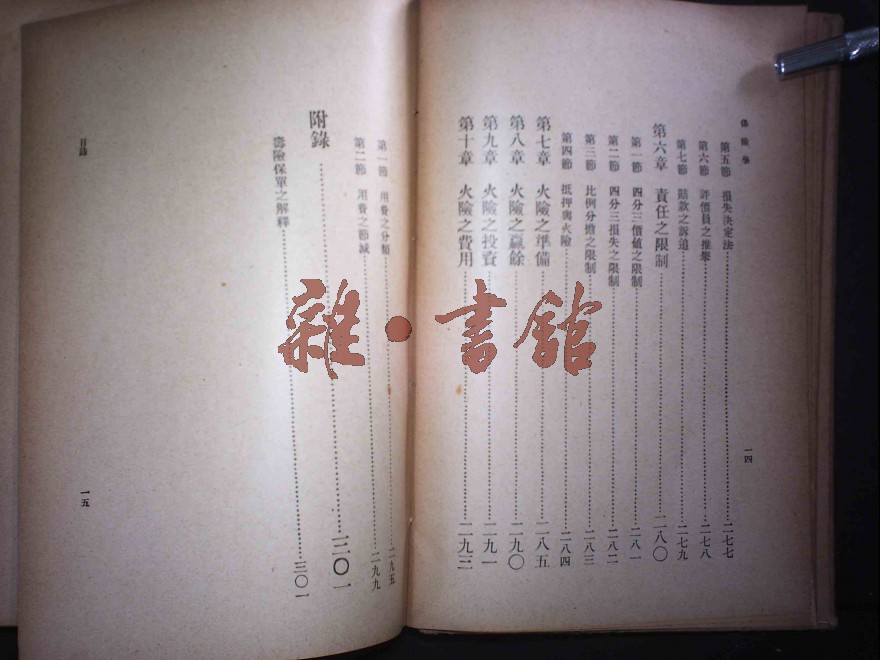 保險學
第五節　損失決定法……二七七
第六節　評價員之推舉……二七八
第七節　賠款之訴追……二七九
第六章　責任之限制……二八〇
第一節　四分三價值之限制……二八一
第二節　四分三損失之限制……二八二
第三節　比例分擔之限制……二八三
第四節　抵押與火險……二八四
第七章　火險之準備……二八五
第八章　火險之贏餘……二九〇
第九章　火險之投資……二九一
第十章　火險之費用……二九三
一四
第一節　用費之分類……二九五
第二節　用費之節減……二九九
附錄……三〇一
壽險保單之解釋……三〇一
目錄
一五
雜·書館